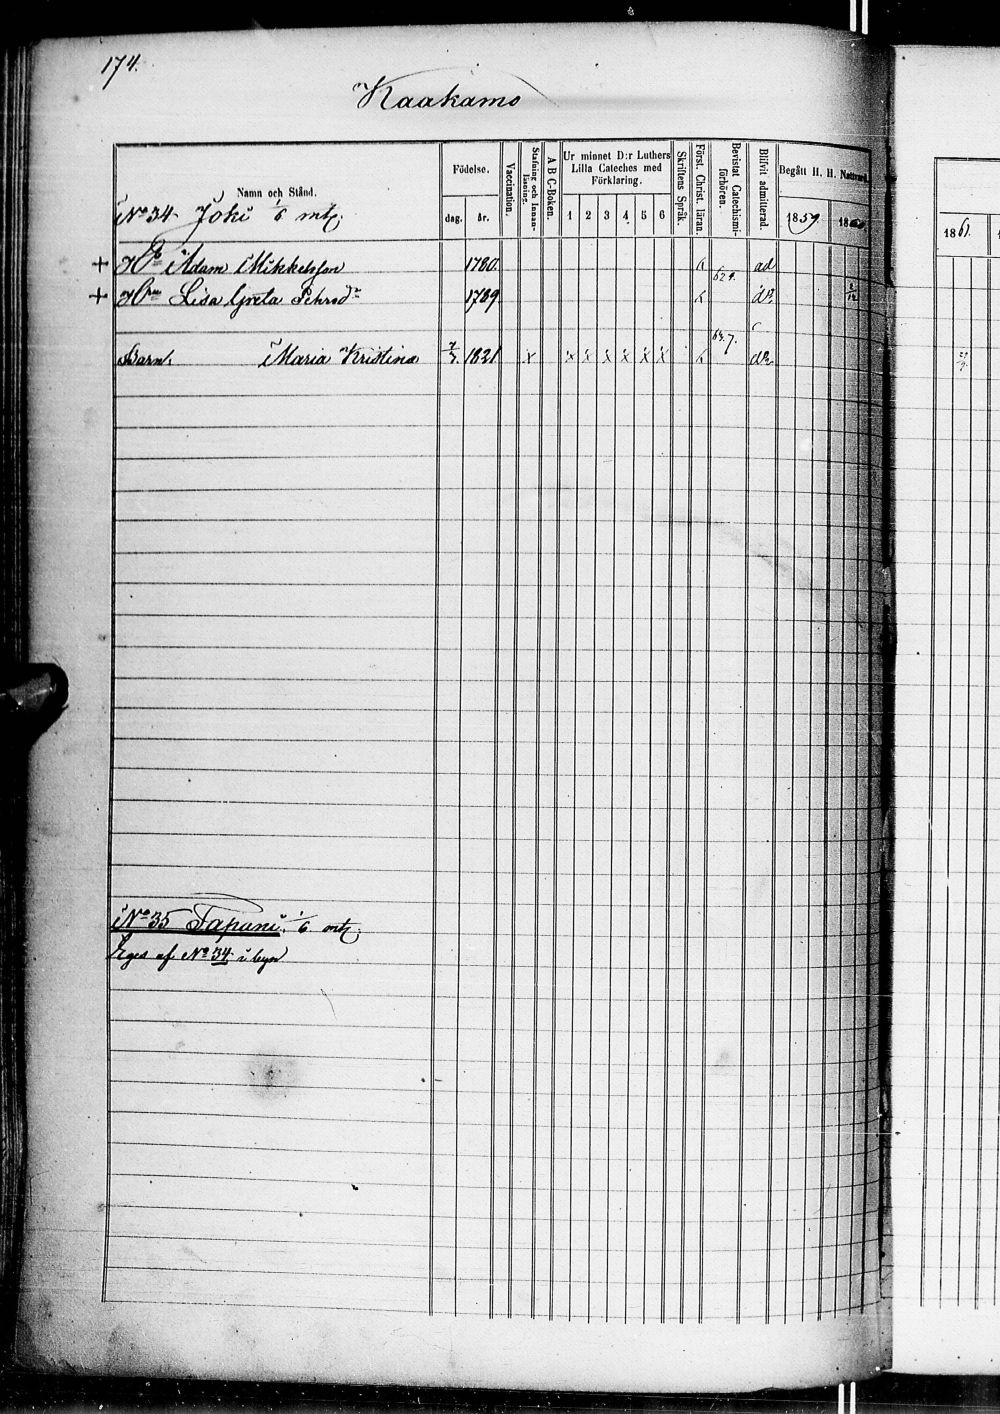 174.
Kaakamo
Namn och Stånd.
Födelse.
dag.
år.
Vaccination.
Stafning och Innan-
läsning.
A B C-Boken.
Ur minnet D:r Luthers
Lilla Cateches med
Förklaring.
1 2 3 4 5 6
Skriftens Språk.
Först. Christ. läran.
Bevistat Catechismi-
förhören.
Blifvit admitterad.
Begått H. H. Nattvard.
1859.
18
1861.
No 34 Joki 1/6 mtl.
+ Adam Mikkelsson 1780. 62 ad
+ Lisa Greta 1789
Barn. Maria Kristina 1821 x x x x x x x 63.7.
No 35 Tapani. 1/6 mtl.
Eges af No 34 i byn